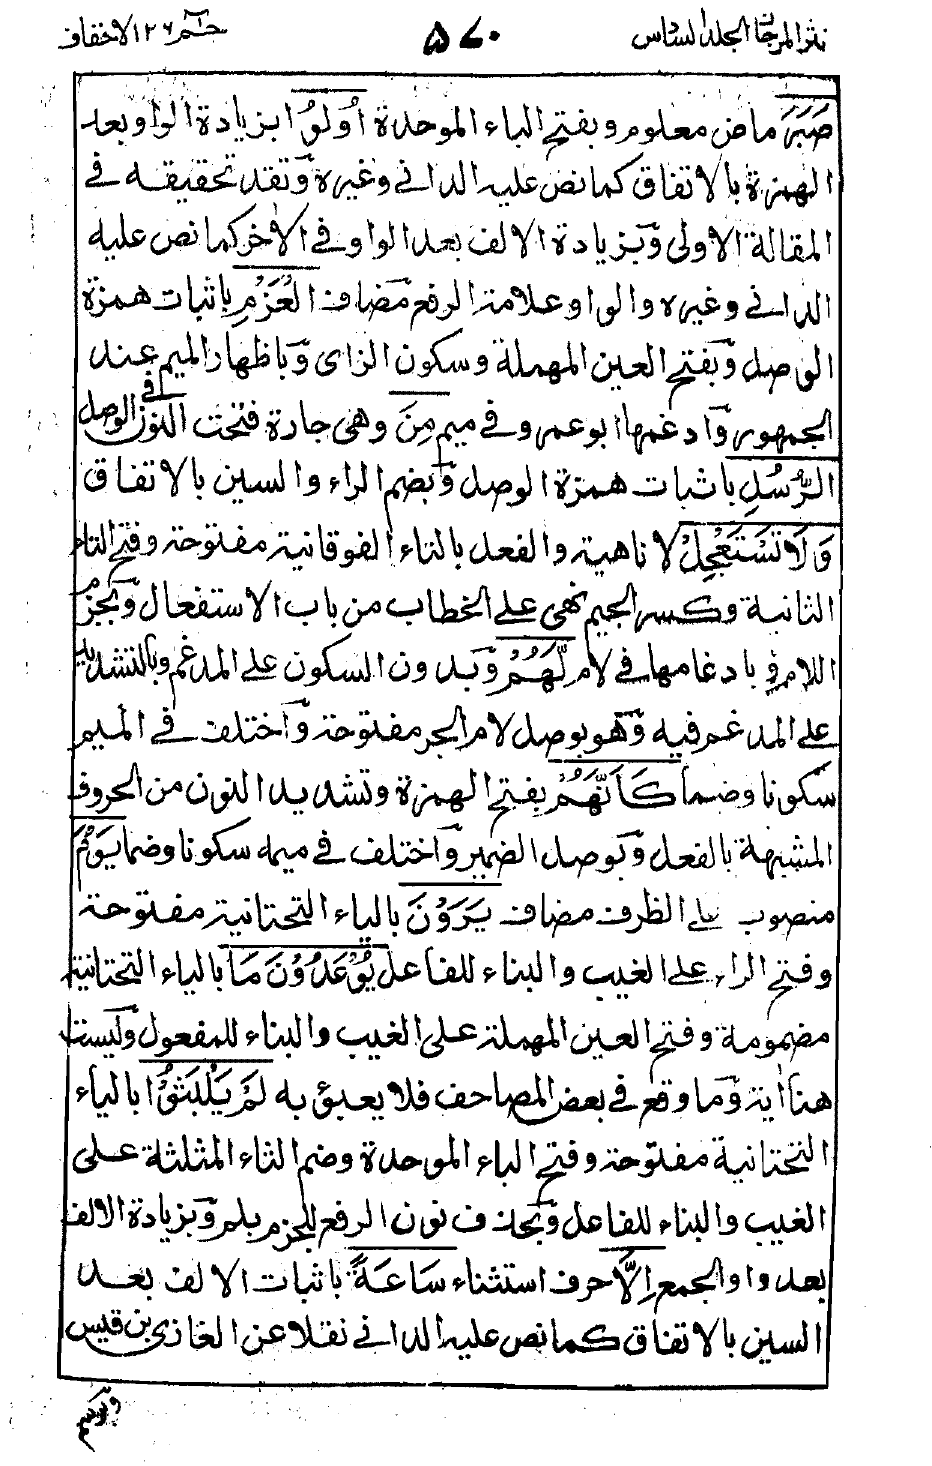 نثر المرجان الجلد السادس ٥٧٠ حٰم ٢٦ الاحقاف
صَبَرَ ماض معلوم وبفتح الباء الموحدة أُولُوا بزيادة الواو بعد
الهمزة بالاتفاق كما نص عليه الداني وغيره وتقدم تحقيقه في
المقالة الاولى وبزيادة الالف بعد الواو في الآخر كما نص عليه
الداني وغيره والواو علامة الرفع مضاف العَزْمِ باثبات همزة
الوصل وبفتح العين المهملة وسكون الزاى وباظهار الميم عند
الجمهور وادغمها ابو عمرو في ميم مِنَ وهي جارة فتحت النون في الوصل
الرُّسُلِ باثبات همزة الوصل وبضم الراء والسين بالاتفاق
وَلَا تَسْتَعْجِلْ لا ناهية والفعل بالتاء الفوقانية مفتوحة وفتح التاء
الثانية وكسر الجيم نهي على الخطاب من باب الاستفعال وبجزم
اللام وبادغامها في لام لَّهُمْ وبدون السكون على المدغم وبالتشديد
على المدغم فيه وهو بوصل لام الجر مفتوحة واختلف في الميم
سكونا وضما كَأَنَّهُمْ بفتح الهمزة وتشديد النون من الحروف
المشبهة بالفعل وبوصل الضمير واختلف في ميمه سكونا وضما يَوْمَ
منصوب على الظرف مضاف يَرَوْنَ بالياء التحتانية مفتوحة
وفتح الراء على الغيب والبناء للفاعل يُوعَدُونَ مَا بالياء التحتانية
مضمومة وفتح العين المهملة على الغيب والبناء للمفعول وليست
هنا أية وما وقع في بعض المصاحف فلا يعبؤ به لَمْ يَلْبَثُوا بالياء
التحتانية مفتوحة وفتح الباء الموحدة وضم الثاء المثلثة على
الغيب والبناء للفاعل وبحذف نون الرفع للجزم بلم وبزيادة الالف
بعد واو الجمع إِلَّا حرف استثناء سَاعَةً باثبات الالف بعد
السين بالاتفاق كما نص عليه الداني نقلا عن الغازي بن قيس
وبرسم